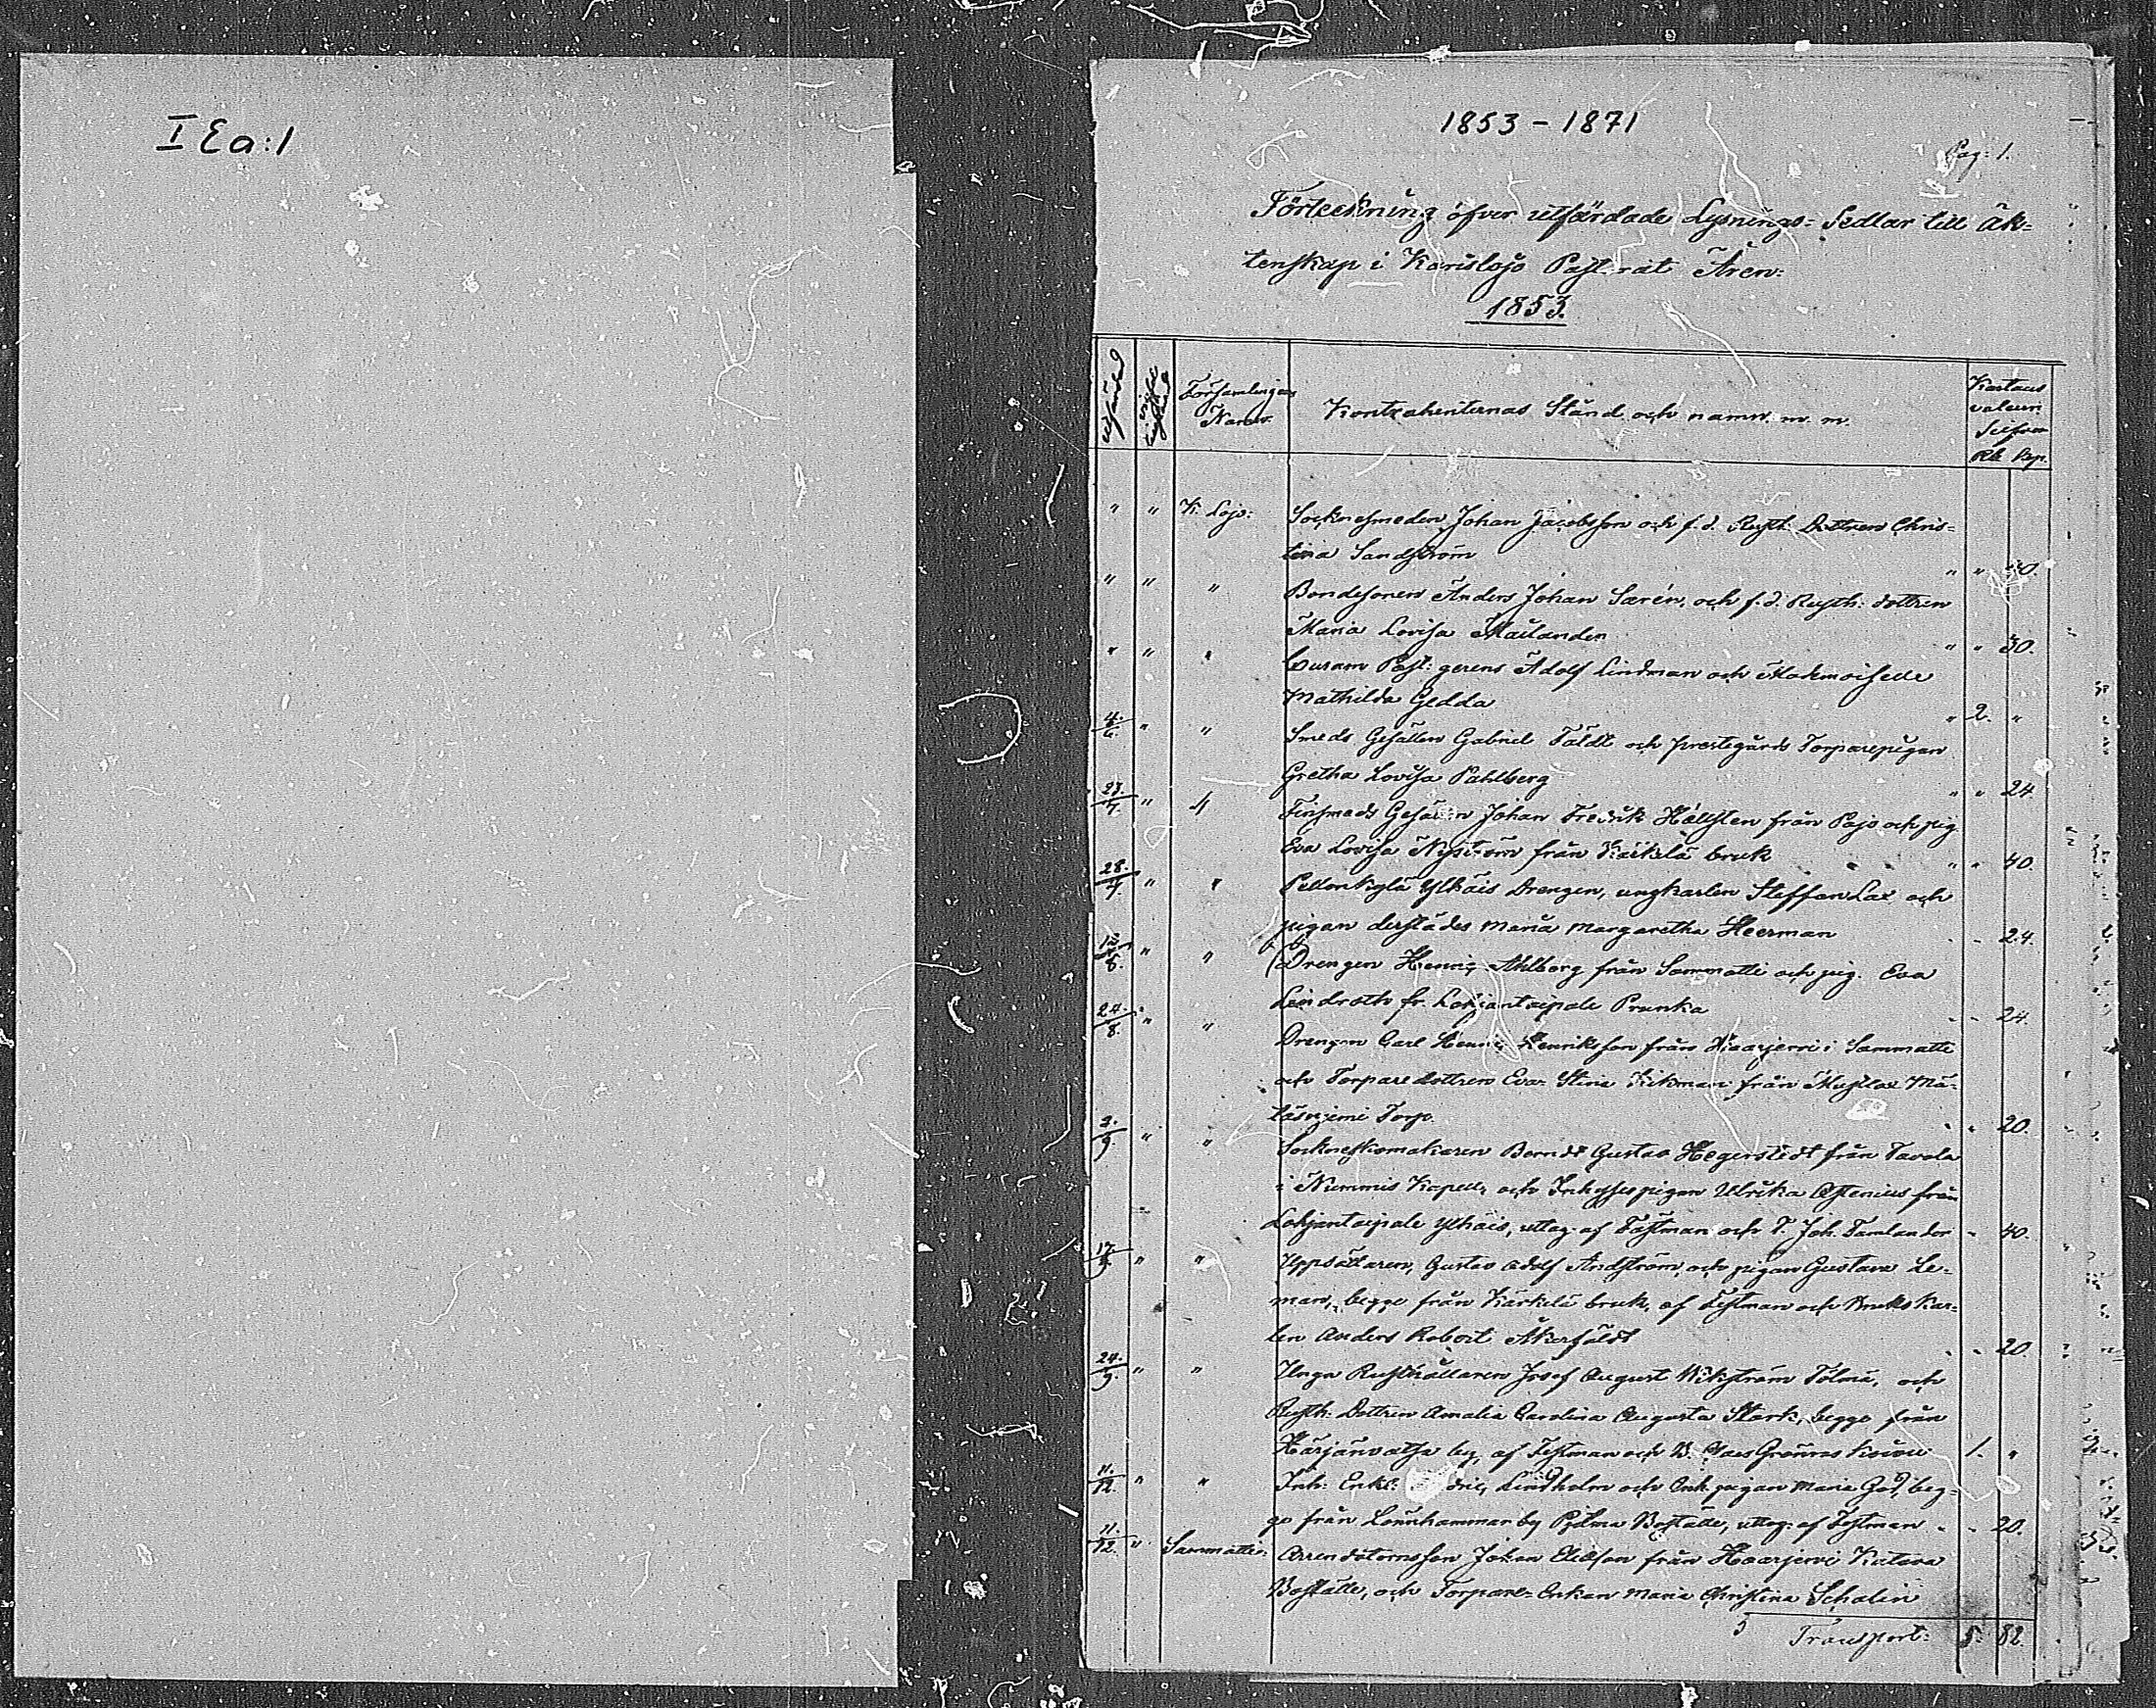 I Ea:1
1853 - 1871
Pag: 1.
Förteckning öfver utfärdade Lysnings-Sedlar till äk-
tenskap i Karislojo Pastorat Åren:
1853.
Utfärdad
Församlingens Namn.
Kontrahenternas Stånd och namn. m. m.
Rb. Kop.
" " K. Lojo: Socknesmeden Johan Jacobsson och f. d. Rusth. Dottren Chris-
tina Sandström " " 50.
" " " Bondesonen Anders Johan Sarén, och f. d. Rusth: dottren
Maria Lovisa Mailanden " " 50.
" " " Curam Past: gerens Adolf Lindman och Mademoiselle
Mathilda Gedda " 2. "
4/6. " " Smeds Gesällen Gabriel Fäldt och prestegårds Torparepigan
Gretha Lovisa Påhlberg " " 24
23./7. " " Finsmeds Gesällen Johan Fredrik Hällsten från Pojo och pig.
Eva Lovisa Nyström från Kärkelä bruk " " 40.
28./7 " " Pellonkylä Ylhäis Drengen, ungkarlen Steffan Lax och
pigan derstädes Maria Margaretha Heerman " " 24.
12/8. " " Drengen Henric Ahlborg från Sammatti och pig. Eva
Lindroth fr. Lohjantaipale Prunka " " 24.
24./8. " " Drengen Carl Henric Henriksson från Haarjervi i Sammatti
och Torparedottren Eva Stina Wikman från Mustlax Mä-
läsniemi Torp. " " 20.
3./9 " " Sockneskomakaren Berndt Gustav Hegerstedt från Tavola
i Nummis Kapell, och Inhysespigan Ulrika Astenius från
Lohjantaipale Ylhäis, uttag. af Fästman och T. Joh. Tamlander " 40.
17./9 " " Uppsättaren, Gustav Adolf Andström, och pigan Gustava Le-
man, begge från Kärkelä bruk, af Fästman och Bruks Kar-
len Anders Robert Åkerfäldt " " 20.
24./9. " " Unga Rusthållaren Josef August Wikström Tölmä, och
Rusth: Dottren Amalia Carolina Augusta Stark, begge från
Härjänvatsa by, af Fästman och 1. "
11./12. " " Inh: Enkl: Lindholm och Enk. pigan Maria beg-
ge från Lönnhammar by Boställe, uttag: af Fästman " " 20.
11./12. " Sammatti: Arrendatorssonen Johan Eliasson från Haarjervi Katava
Boställe, och Torpare-Enkan Maria Christina Schalin
Transport: 5. 82.